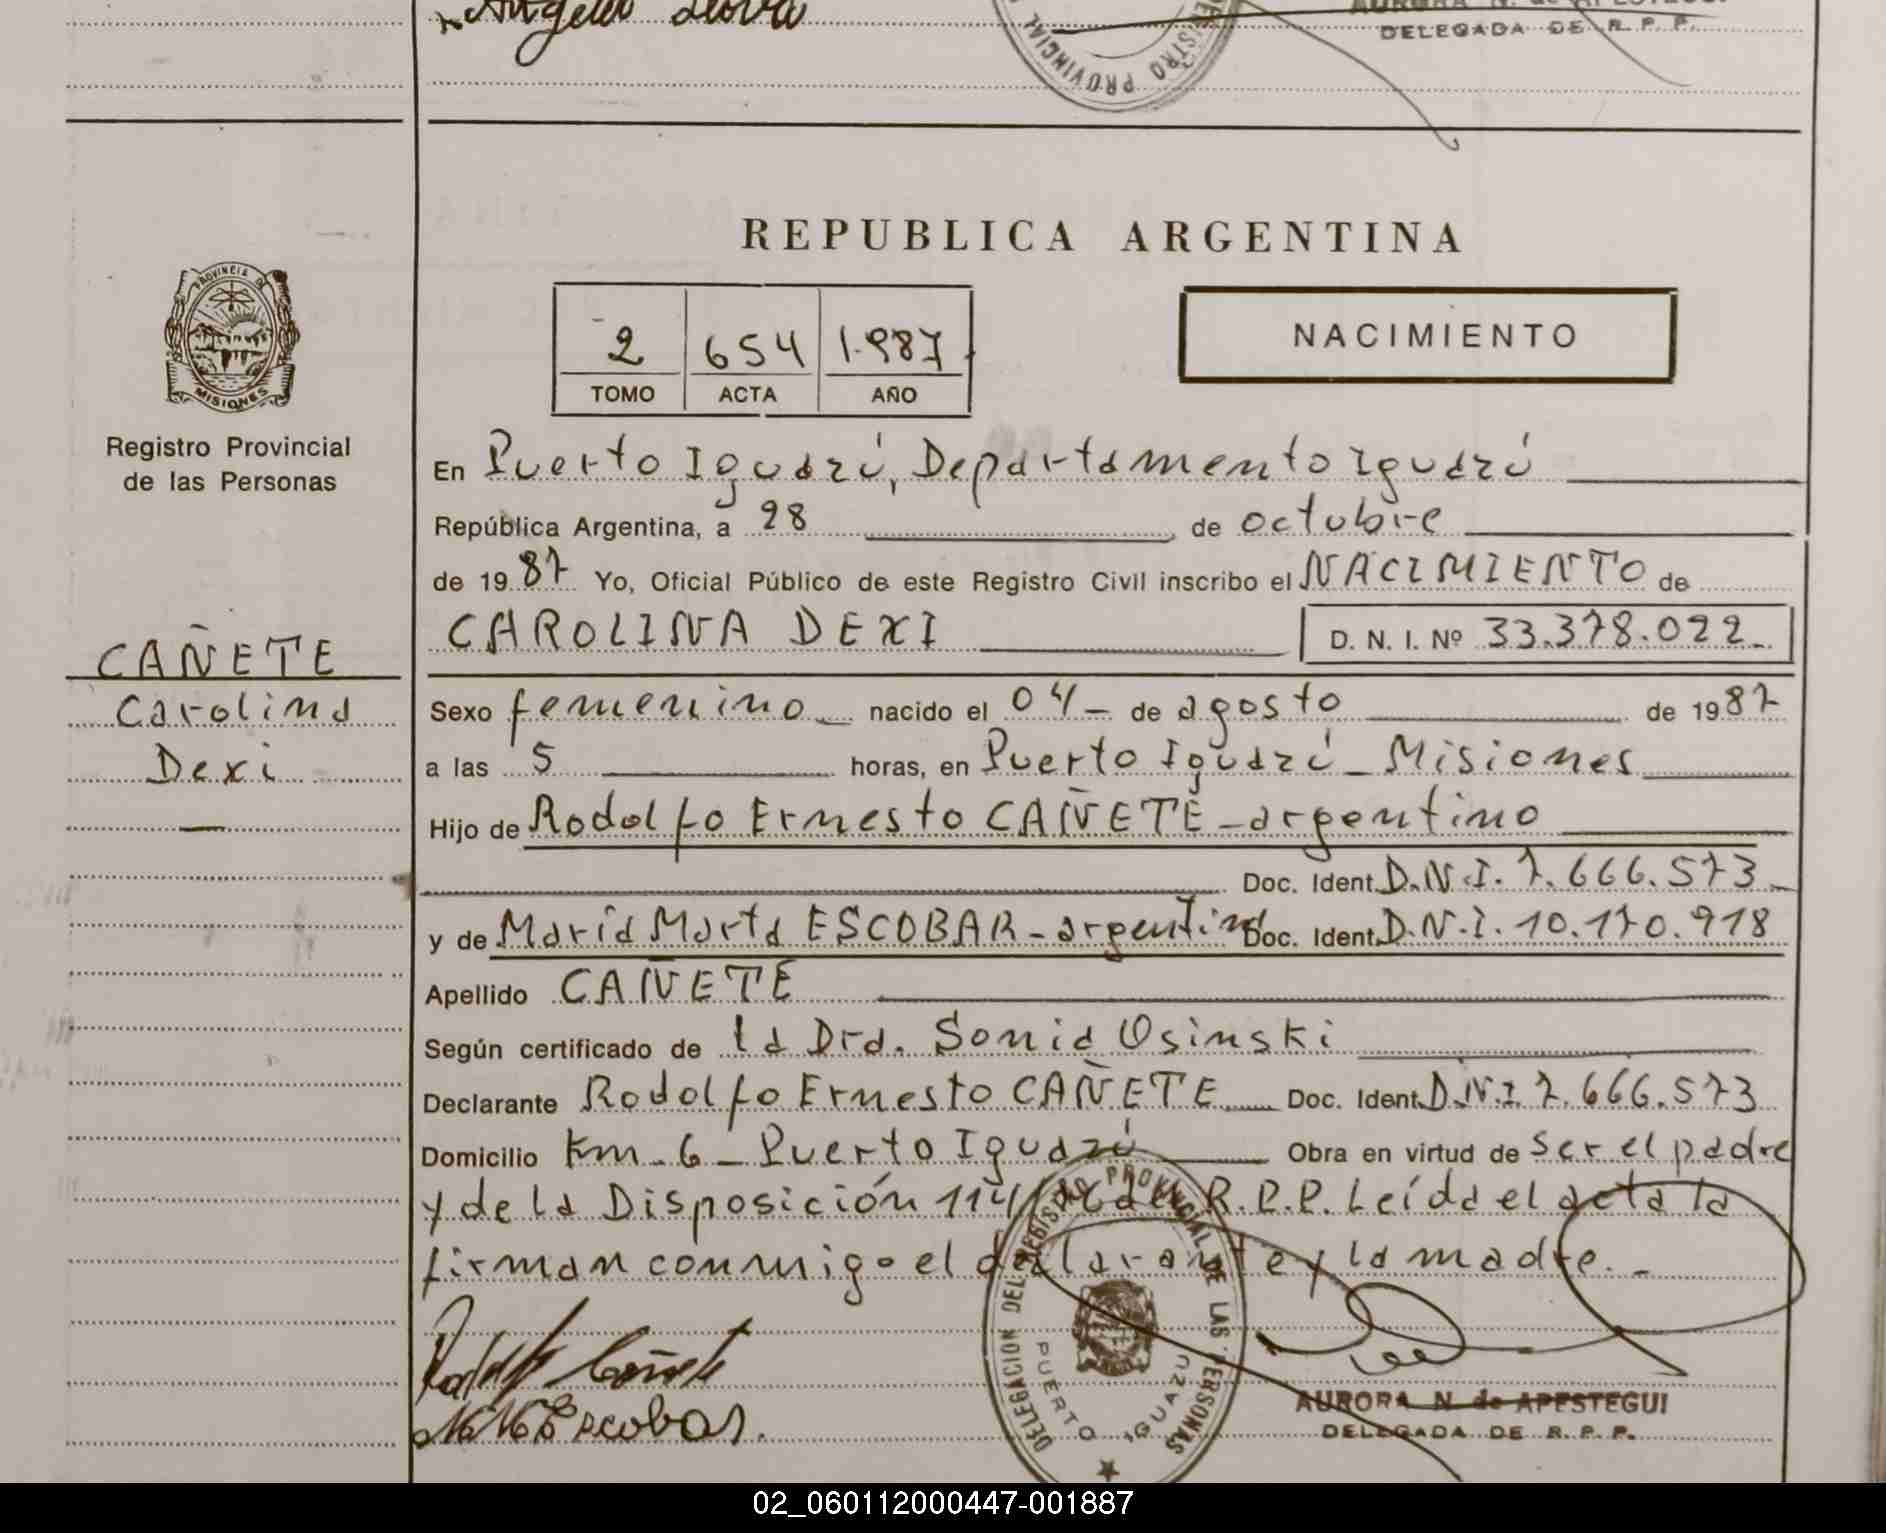 AURORA N. de APESTEGUI
DELEGADA DE R. P. P.
REGISTRO PROVINCIAL
REPUBLICA ARGENTINA
PROVINCIA DE
MISIONES
Registro Provincial
de las Personas
2 654 1.987
TOMO ACTA AÑO
NACIMIENTO
En Puerto Iguazú, Departamento Iguazú
República Argentina, a 28 de octubre
de 19 87 Yo, Oficial Público de este Registro Civil inscribo el NACIMIENTO de
CAROLINA DEXI D. N. I. Nº 33.378.022
CAÑETE
Carolina
Dexi
Sexo femenino nacido el 04 de agosto de 19 87
a las 5 horas, en Puerto Iguazú - Misiones
Hijo de Rodolfo Ernesto CAÑETE - argentino
Doc. Ident. D.N.I. 7.666.573
y de María Marta ESCOBAR - argentina Doc. Ident. D.N.I. 10.170.918
Apellido CAÑETE
Según certificado de la Dra. Sonia Osinski
Declarante Rodolfo Ernesto CAÑETE Doc. Ident. D.N.I. 7.666.573
Domicilio Km - 6 - Puerto Iguazú Obra en virtud de ser el padre
y de la Disposición R.P.P. Leída el acta la
firman conmigo el declarante y la madre. -
Rodolfo Cañete
M M Escobar.
DELEGACION DEL REGISTRO PROVINCIAL DE LAS PERSONAS
PUERTO IGUAZU
AURORA N. de APESTEGUI
DELEGADA DE R. P. P.
02_060112000447-001887